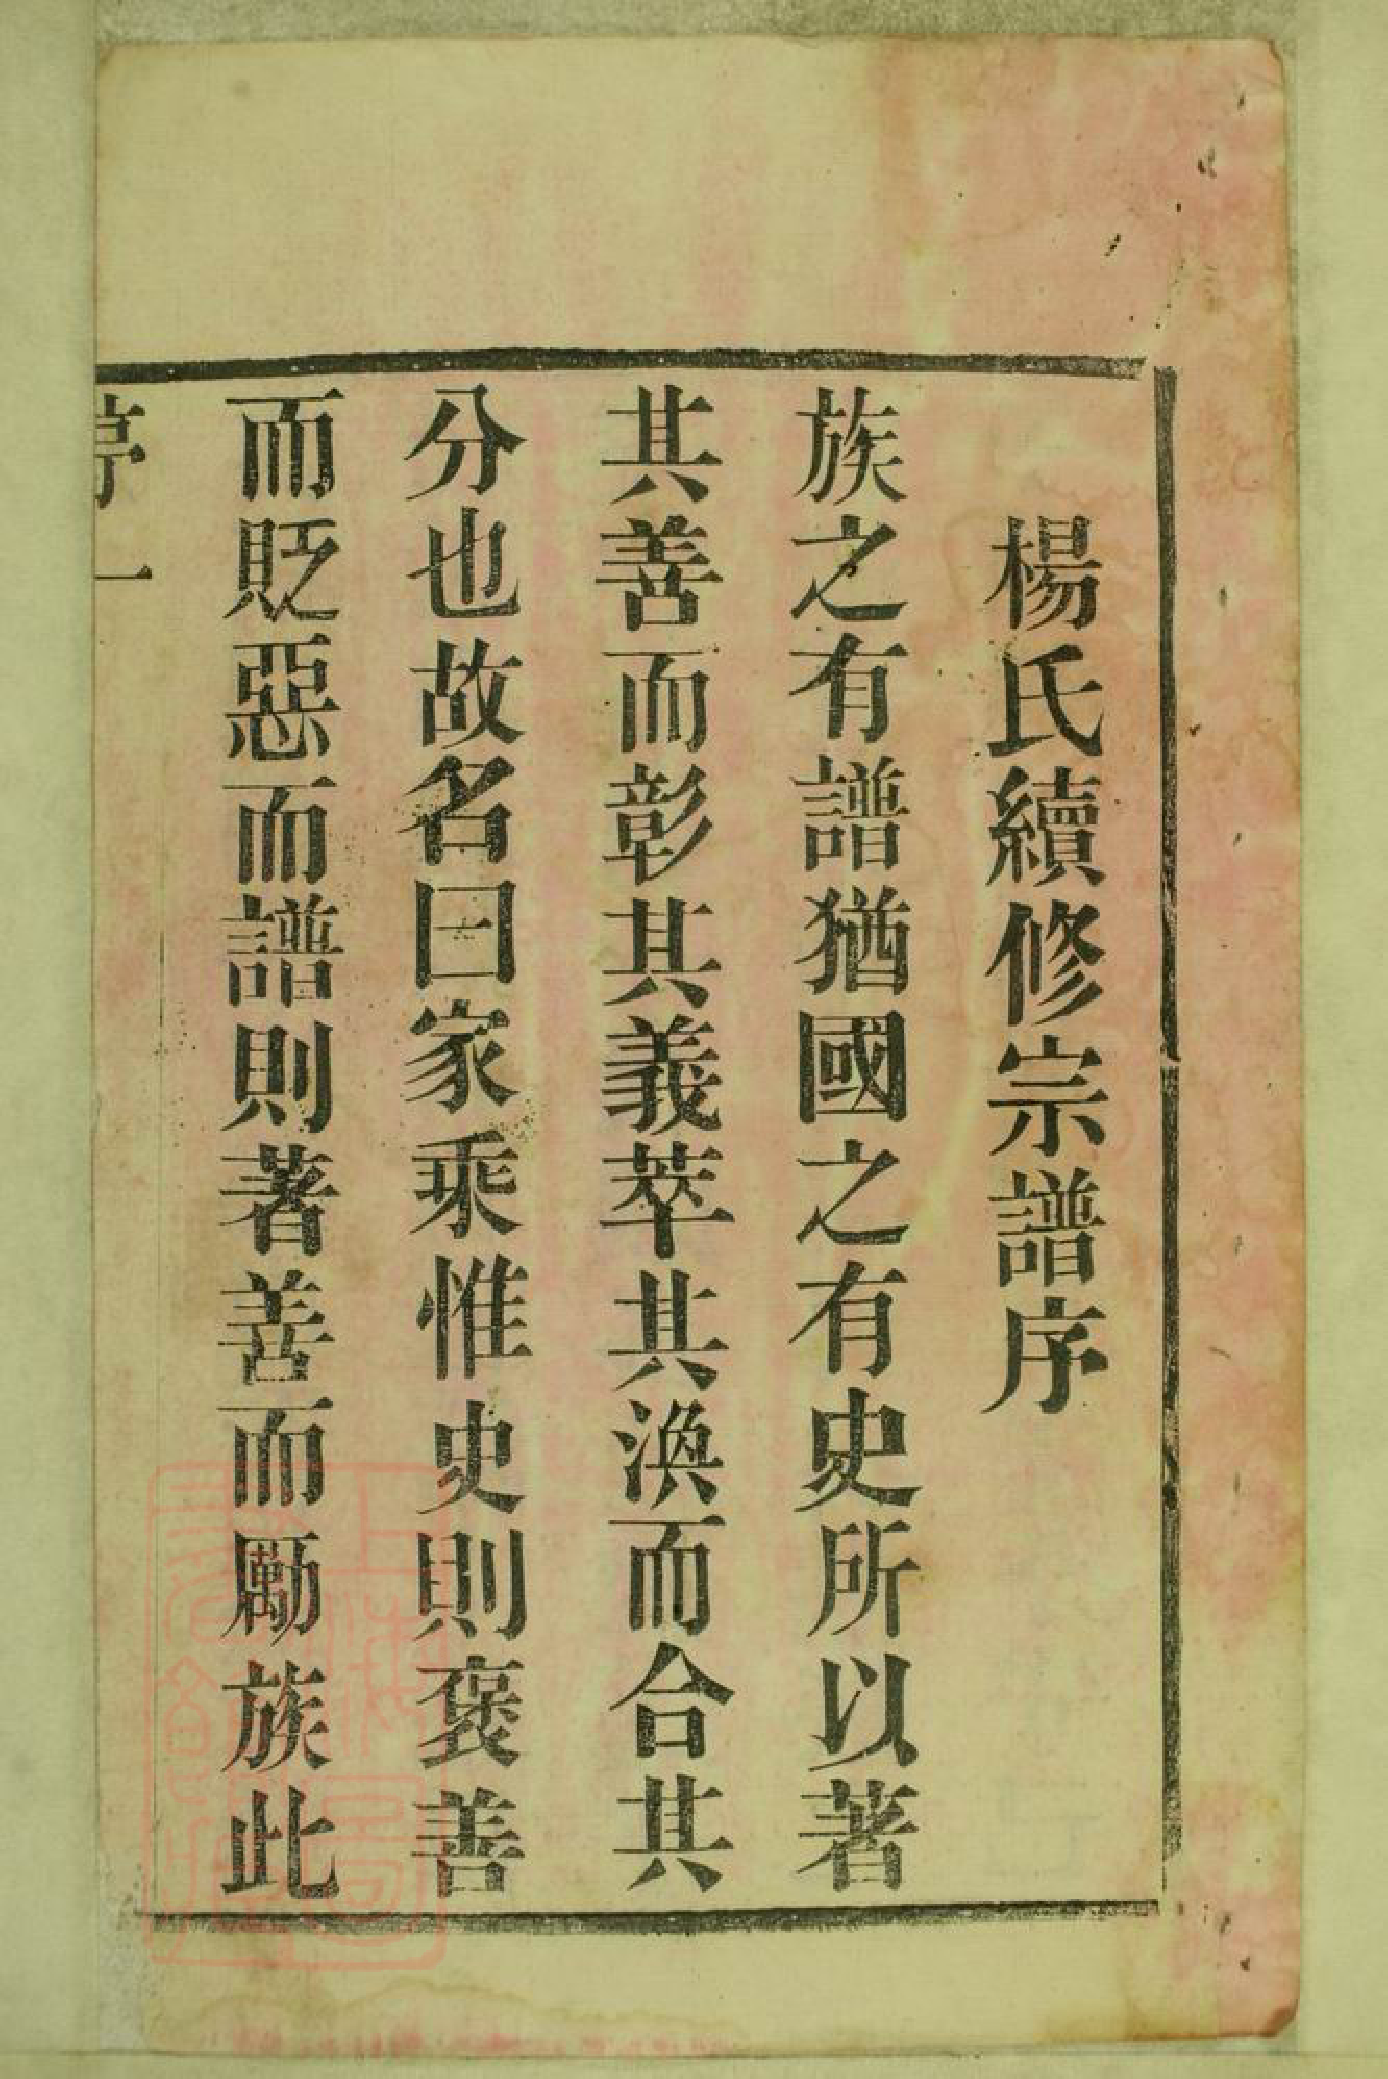 楊氏續修宗譜序
族之有譜猶國之有史所以著
其善而彰其義萃其渙而合其
分也故名曰家乘惟史則褒善
而貶惡而譜則著善而勵族此
序一